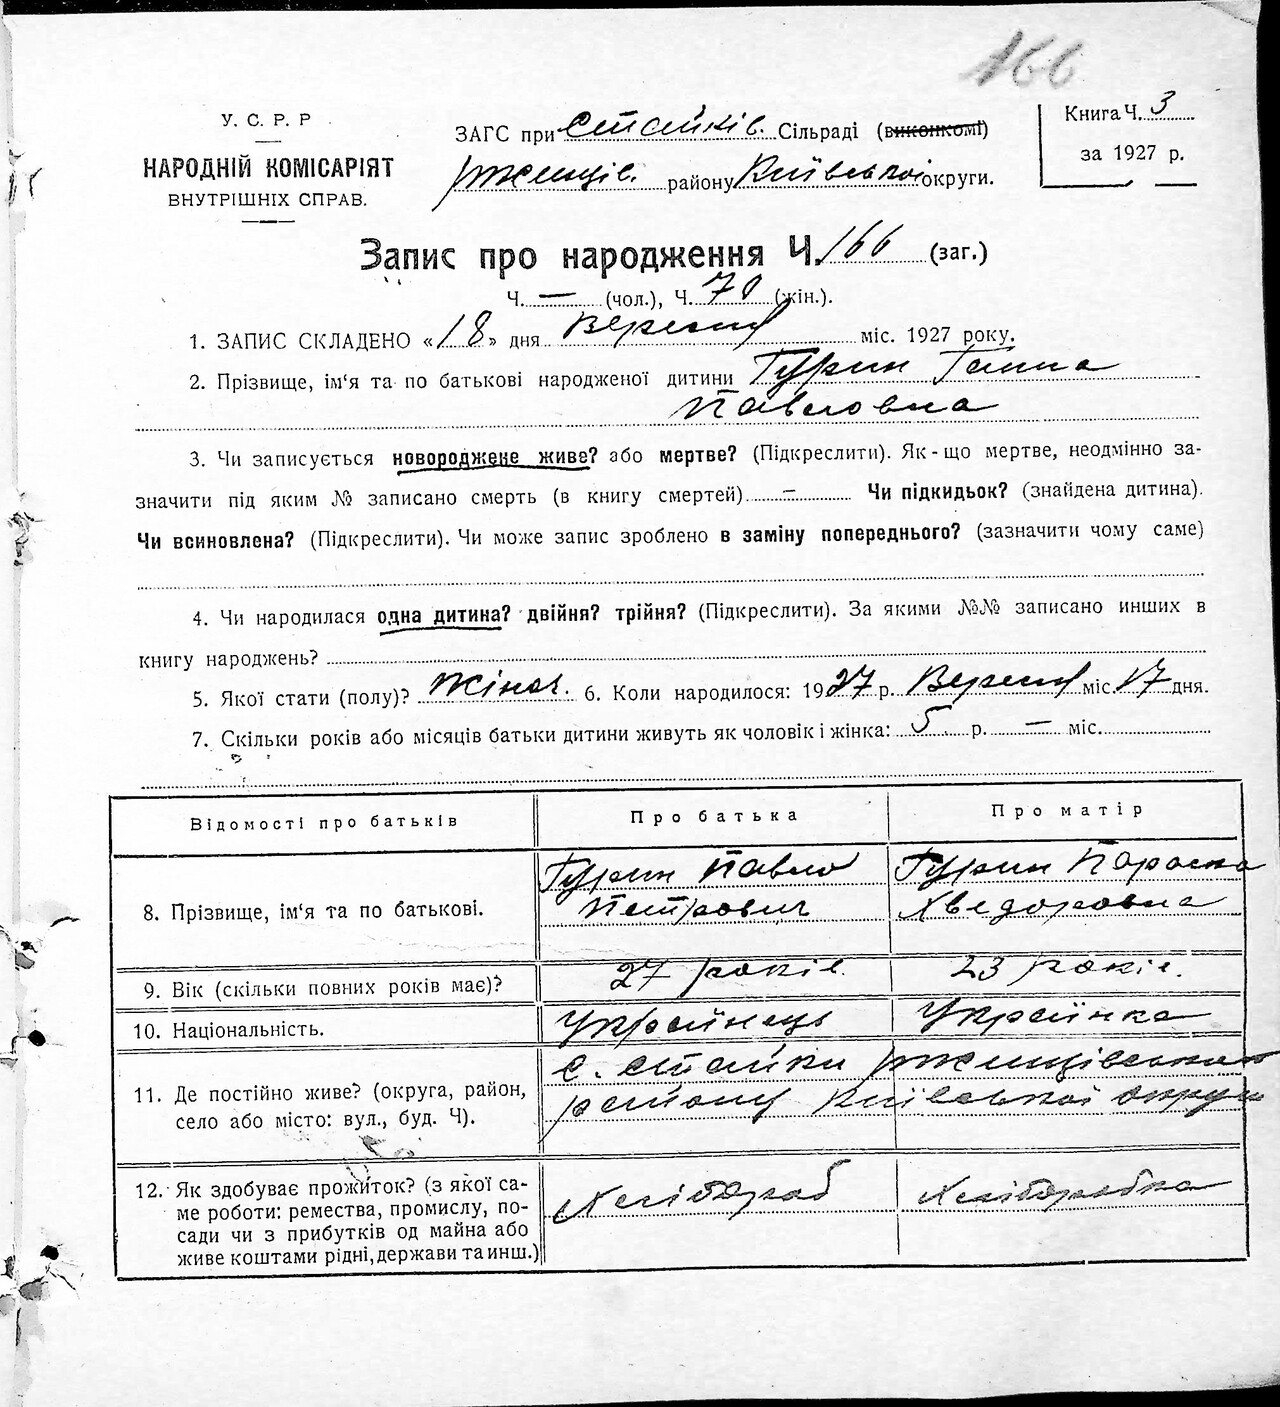 166
У. С. Р. Р
НАРОДНІЙ КОМІСАРІЯТ
ВНУТРІШНІХ СПРАВ.
ЗАГС при Стайків. Сільраді (виконкомі)
Ржищів. району Київської округи.
Книга Ч. 3
за 1927 р.
Запис про народження Ч. 166 (заг.)
Ч. — (чол.), Ч. 70 (жін.).
1. ЗАПИС СКЛАДЕНО «18» дня Вересня міс. 1927 року.
2. Прізвище, ім‘я та по батькові народженої дитини Гурин Ганна
Павловна
3. Чи записується новороджене живе? або мертве? (Підкреслити). Як-що мертве, неодмінно за-
значити під яким № записано смерть (в книгу смертей) — Чи підкидьок? (знайдена дитина).
Чи всиновлена? (Підкреслити). Чи може запис зроблено в заміну попереднього? (зазначити чому саме)
4. Чи народилася одна дитина? двійня? трійня? (Підкреслити). За якими №№ записано инших в
книгу народжень?
5. Якої стати (полу)? Жіноч. 6. Коли народилося: 1927 р. Вересня міс 17 дня.
7. Скільки років або місяців батьки дитини живуть як чоловік і жінка: 5 р. — міс.
Відомості про батьків Про батька Про матір
8. Прізвище, ім‘я та по батькові. Гурин Павло Петрович Гурин Параска Хведоровна
9. Вік (скільки повних років має)? 27 років. 23 років.
10. Національність. Українець Українка
11. Де постійно живе? (округа, район,
село або місто: вул., буд. Ч). с. Стайки Ржищівського
району Київської округи
12. Як здобуває прожиток? (з якої са-
ме роботи: ремества, промислу, по-
сади чи з прибутків од майна або
живе коштами рідні, держави та инш.) Хлібороб Хліборобка